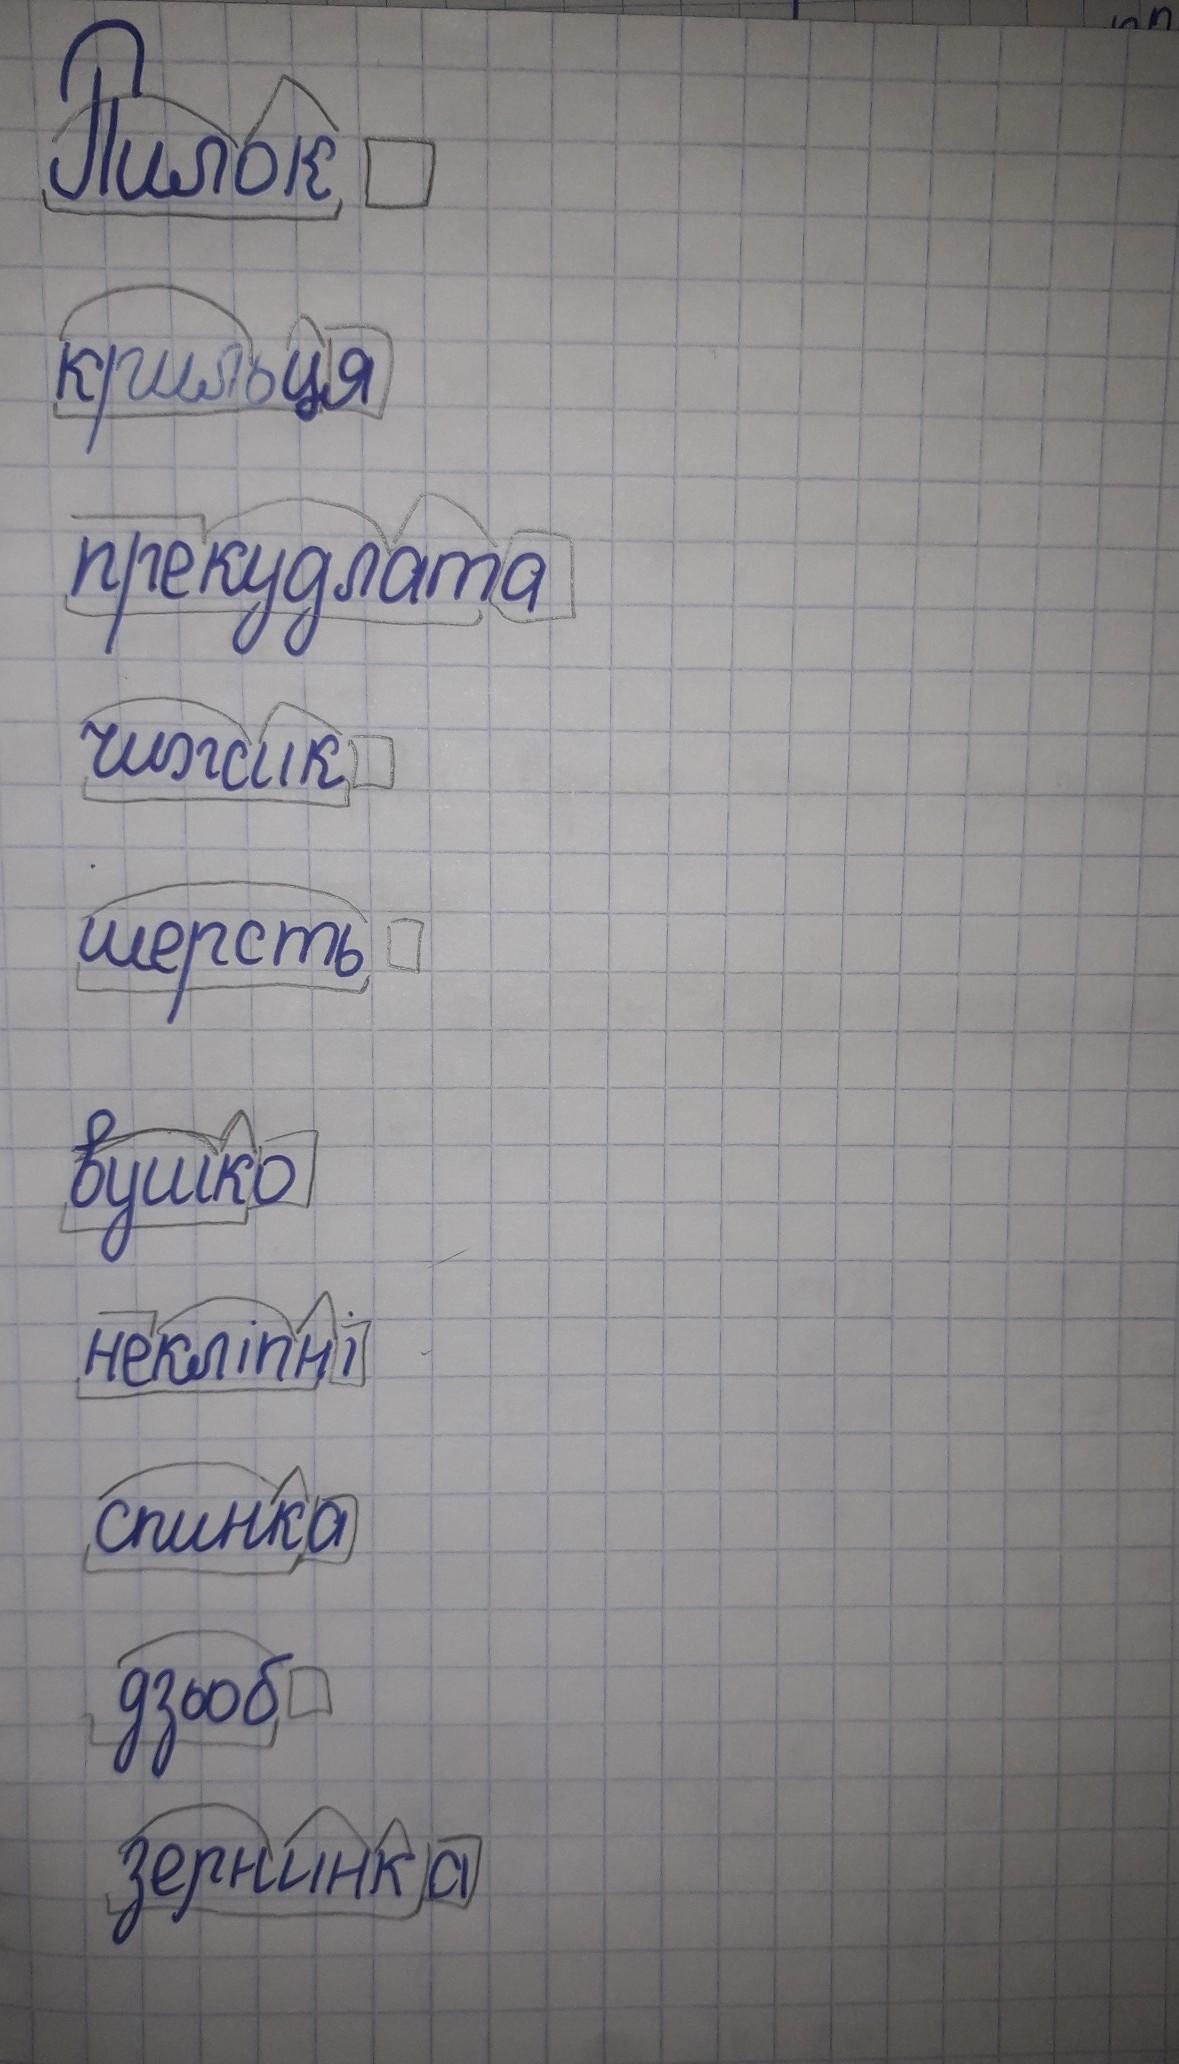 Пилок
крильця
прекудлата
чижик
шерсть
вушко
некліпні
спинка
дзьоб
зернинка